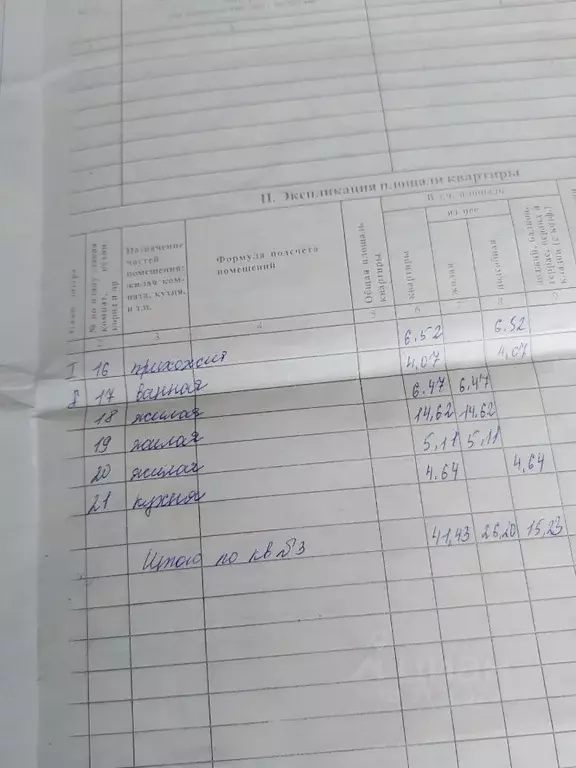 II. Экспликация площади квартиры
№ по плану
Назначение частей помещения: жилая комната, кухня, и т.п.
Формула подсчета помещений
Общая площадь квартиры
В т.ч. площадь
из нее
квартиры
жилая
подсобная
3 4
I 16 прихожая 6.52 6.52
17 ванная 4.07 4.07
18 жилая 6.47 6.47
19 жилая 14.62 14.62
20 жилая 5,11 5,11
21 кухня 4.64 4.64
Итого по кв №3 41,43 26,20 15,23